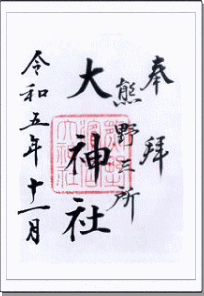 奉拝
熊野三所
大神社
令和五年十一月